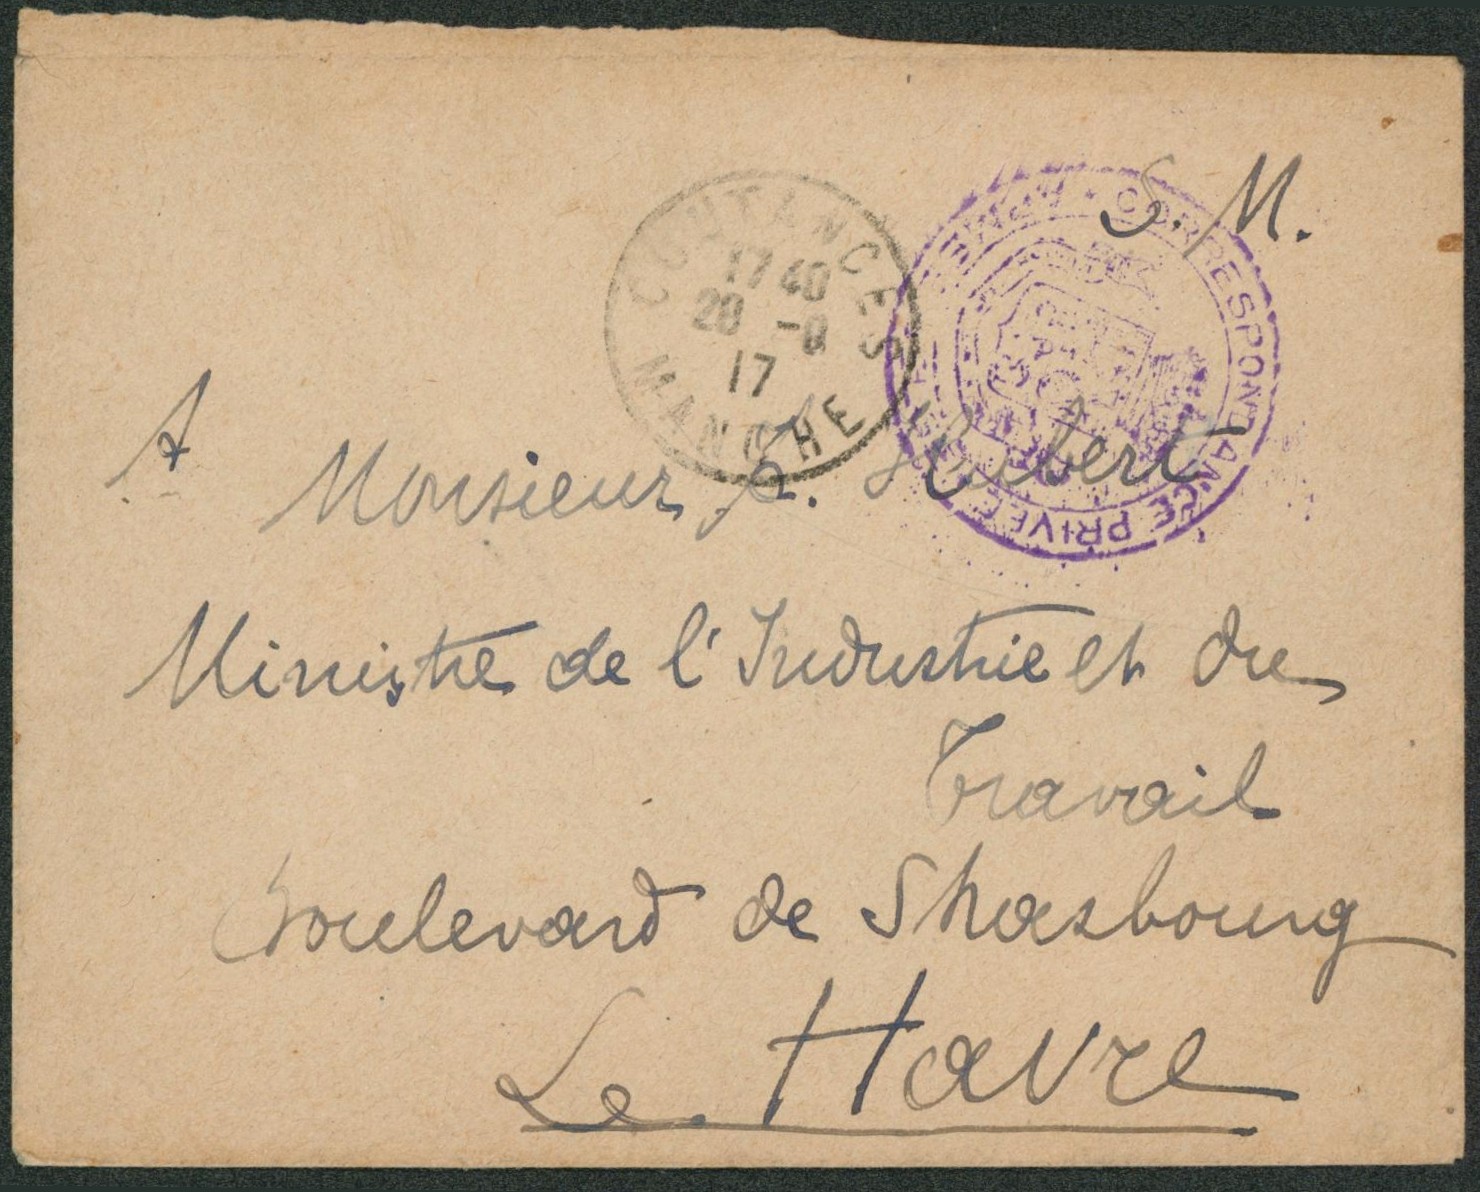 S. M.
COUTANCES
17 40
20 -8
17
MANCHE
CORRESPONDANCE PRIVEE
A
Monsieur A. Hubert
Ministre de l'Industrie et du
Travail
Boulevard de Strasbourg
Le Havre